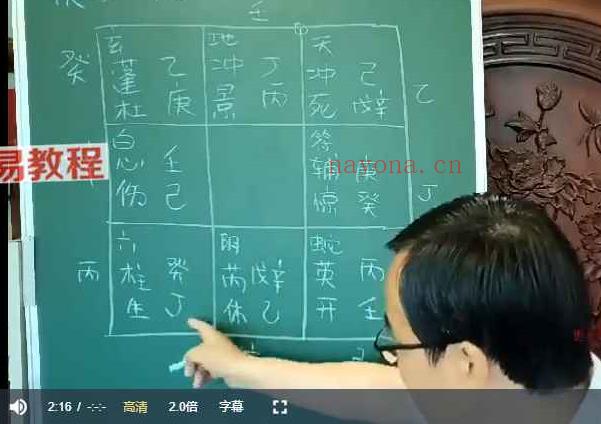 壬
癸
玄
蓬 乙
杜 庚
地
冲 丁
景 丙
天
冲 己
死 戊辛
乙
易教程
白
心 壬
伤 己
符
辅 庚
惊 癸
nayona.cn
丁
丙
六
柱 癸
生 丁
阴
芮 戊辛
休 乙
蛇
英 丙
开 壬
2:16 / -:-:- 高清 2.0倍 字幕